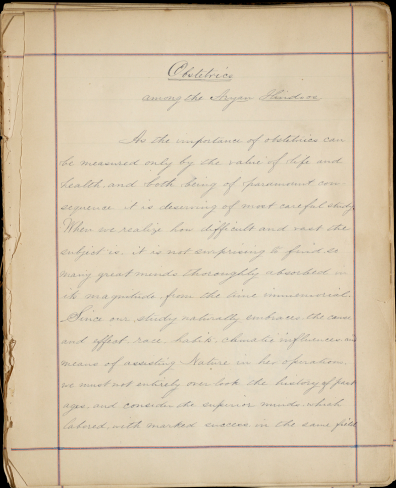 Obstetrics
among the Aryan Hindoos
As the importance of obstetrics can
be measured only by the value of life and
health and both being of paramount con-
sequence it is deserving of most careful study.
When we realize how difficult and vast the
subject is, it is not surprising to find so
many great minds thoroughly absorbed in
its magnitude from the time immemorial.
Since our study naturally embraces the cause
and effect, race, habit, climatic influences and
means of assisting Nature in her operation,
we must not entirely over look the history of past
ages and consider the superior minds which
labored with marked success in the same field